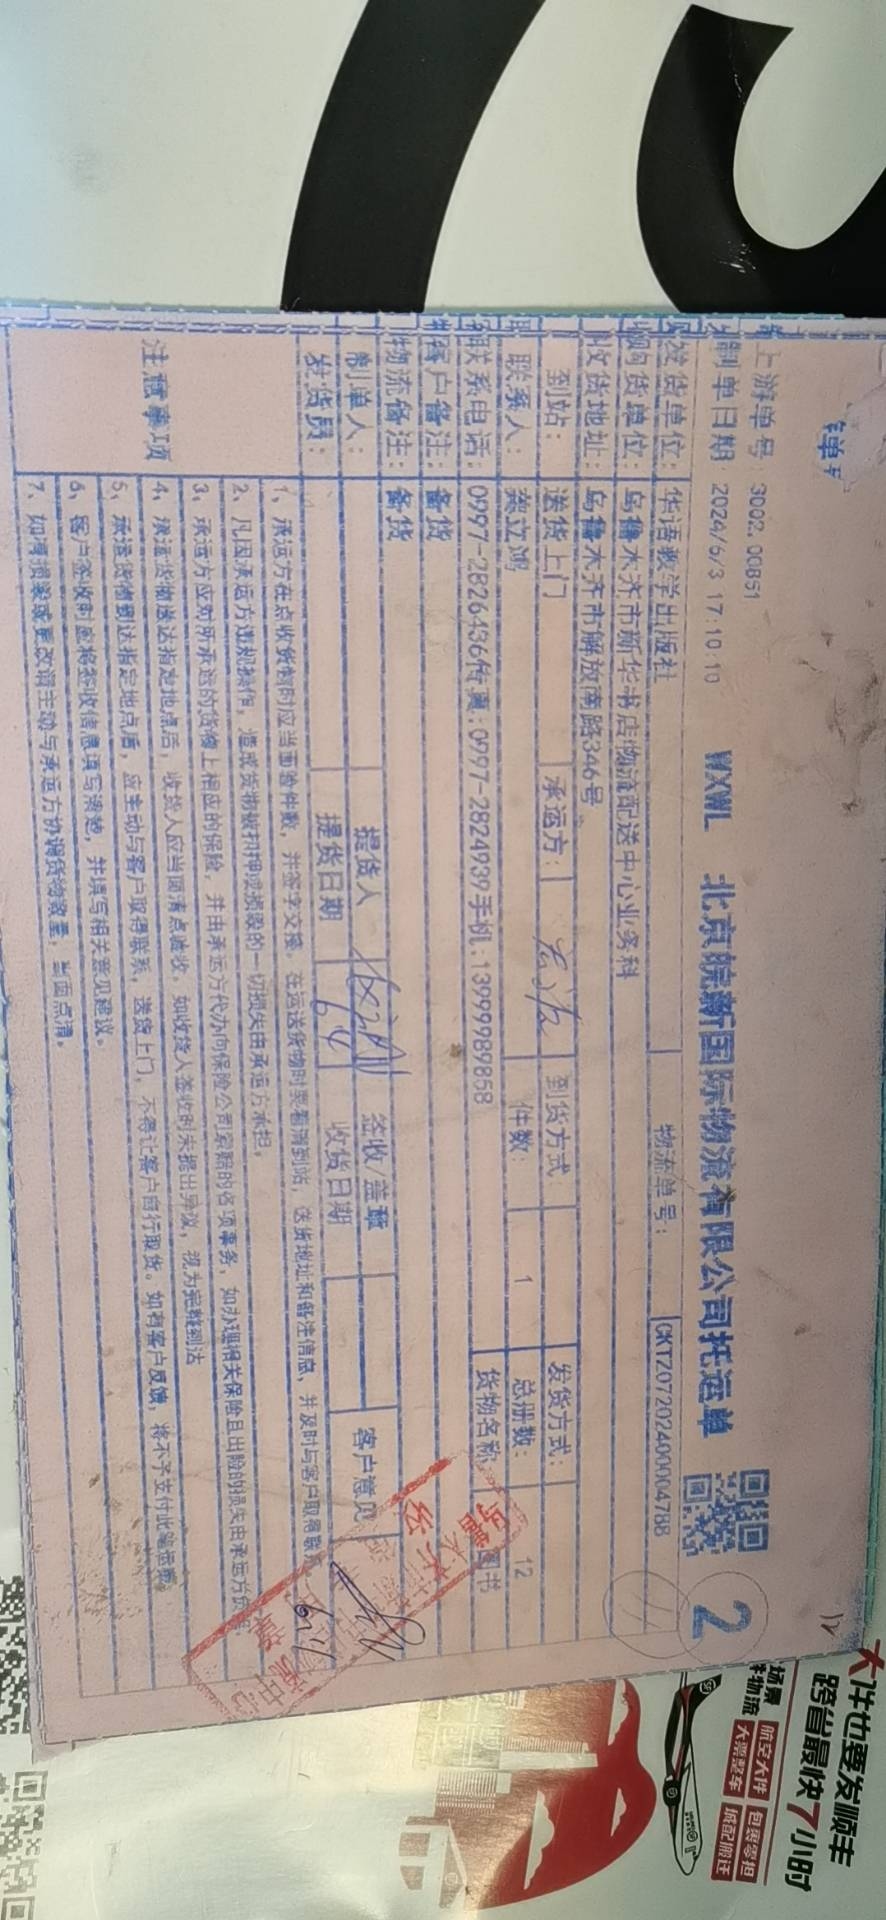 上游单号: 3002.00851
制单日期: 2024/6/3 17:10:10 WXWL 北京皖新国际物流有限公司托运单 2
发货单位: 华语教学出版社 物流单号: CKTZ0720240004788
购货单位: 乌鲁木齐市新华书店物流配送中心业务科
收货地址: 乌鲁木齐市解放南路346号
到站: 送货上门 承运方: 到货方式 发货方式:
联系人: 龚立鸿 件数: 1 总册数: 12
联系电话: 0997-2826436传真:0997-2824939手机:13999989858 货物名称 图书
客户备注: 备货
物流备注: 备货
制单人: 提货人 签收/盖章 客户意见
发货员: 提货日期 6.4 收货日期
注意事项
1、承运方在点收货物时应当面验件数, 并签字交接。在运送货物时要看清到站, 送货地址和备注信息, 并及时与客户取得联系。
2、凡因承运方违规操作, 造成货物被扣押或损毁的一切损失由承运方承担。
3、承运方应对所承运的货物上相应的保险, 并由承运方代办向保险公司索赔的各项事务, 如办理相关保险且出险的损失由承运方负责。
4、承运货物送达指定地点后, 收货人应当面清点验收, 如收货人签收时未提出异议, 视为完整到达
5、承运货物到达指定地点后, 应主动与客户取得联系, 送货上门, 不得让客户自行取货。如有客户反馈, 将不予支付此笔运费。
6、客户签收时应将签收信息填写清楚, 并填写相关意见建议。
7、如有损毁或更改请主动与承运方协调货物数量, 当面点清。
大件也要发顺丰
跨省最快7小时
航空大件 包裹零担
大票整车 城配搬运